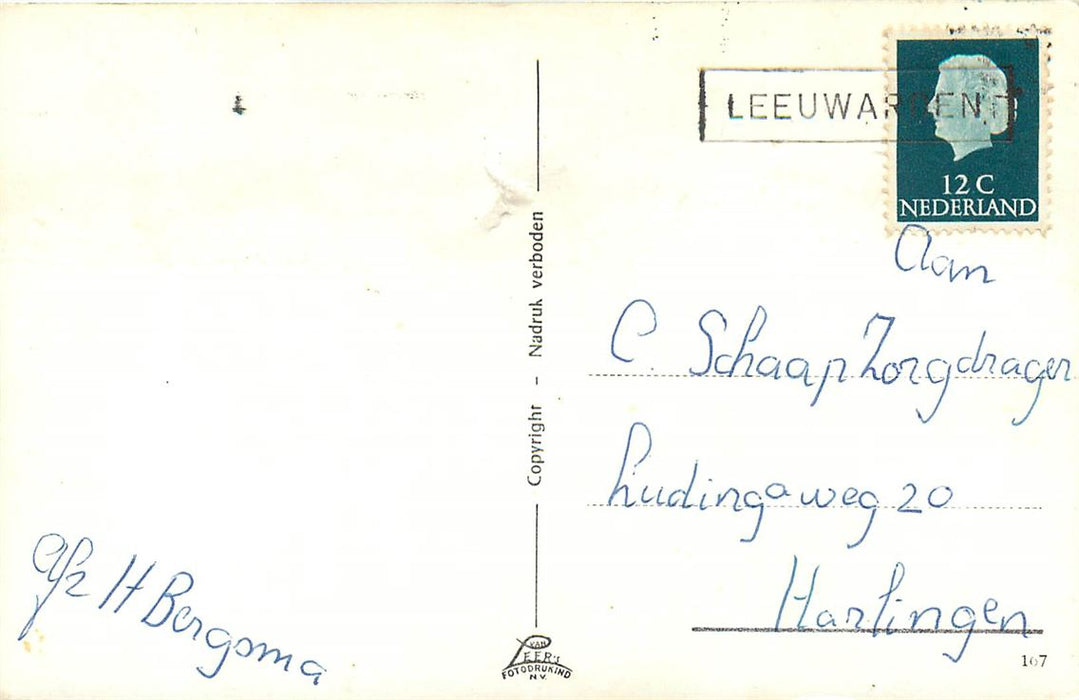 LEEUWARDEN
12 C
NEDERLAND
Aan
C. Schaap Zorgdrager
Ludingaweg 20
Harlingen
afz H Bergsma
Copyright - Nadruk verboden
VAN
LEER'S
FOTODRUKIND
N.V.
167